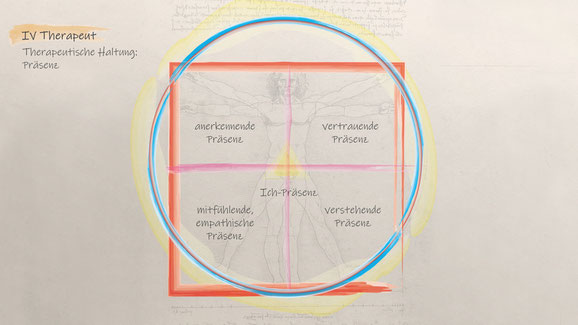 IV Therapeut
Therapeutische Haltung:
Präsenz
anerkennende
Präsenz
Vertrauende
Präsenz
Ich-Präsenz
mitfühlende,
empathische
Präsenz
Verstehende
Präsenz